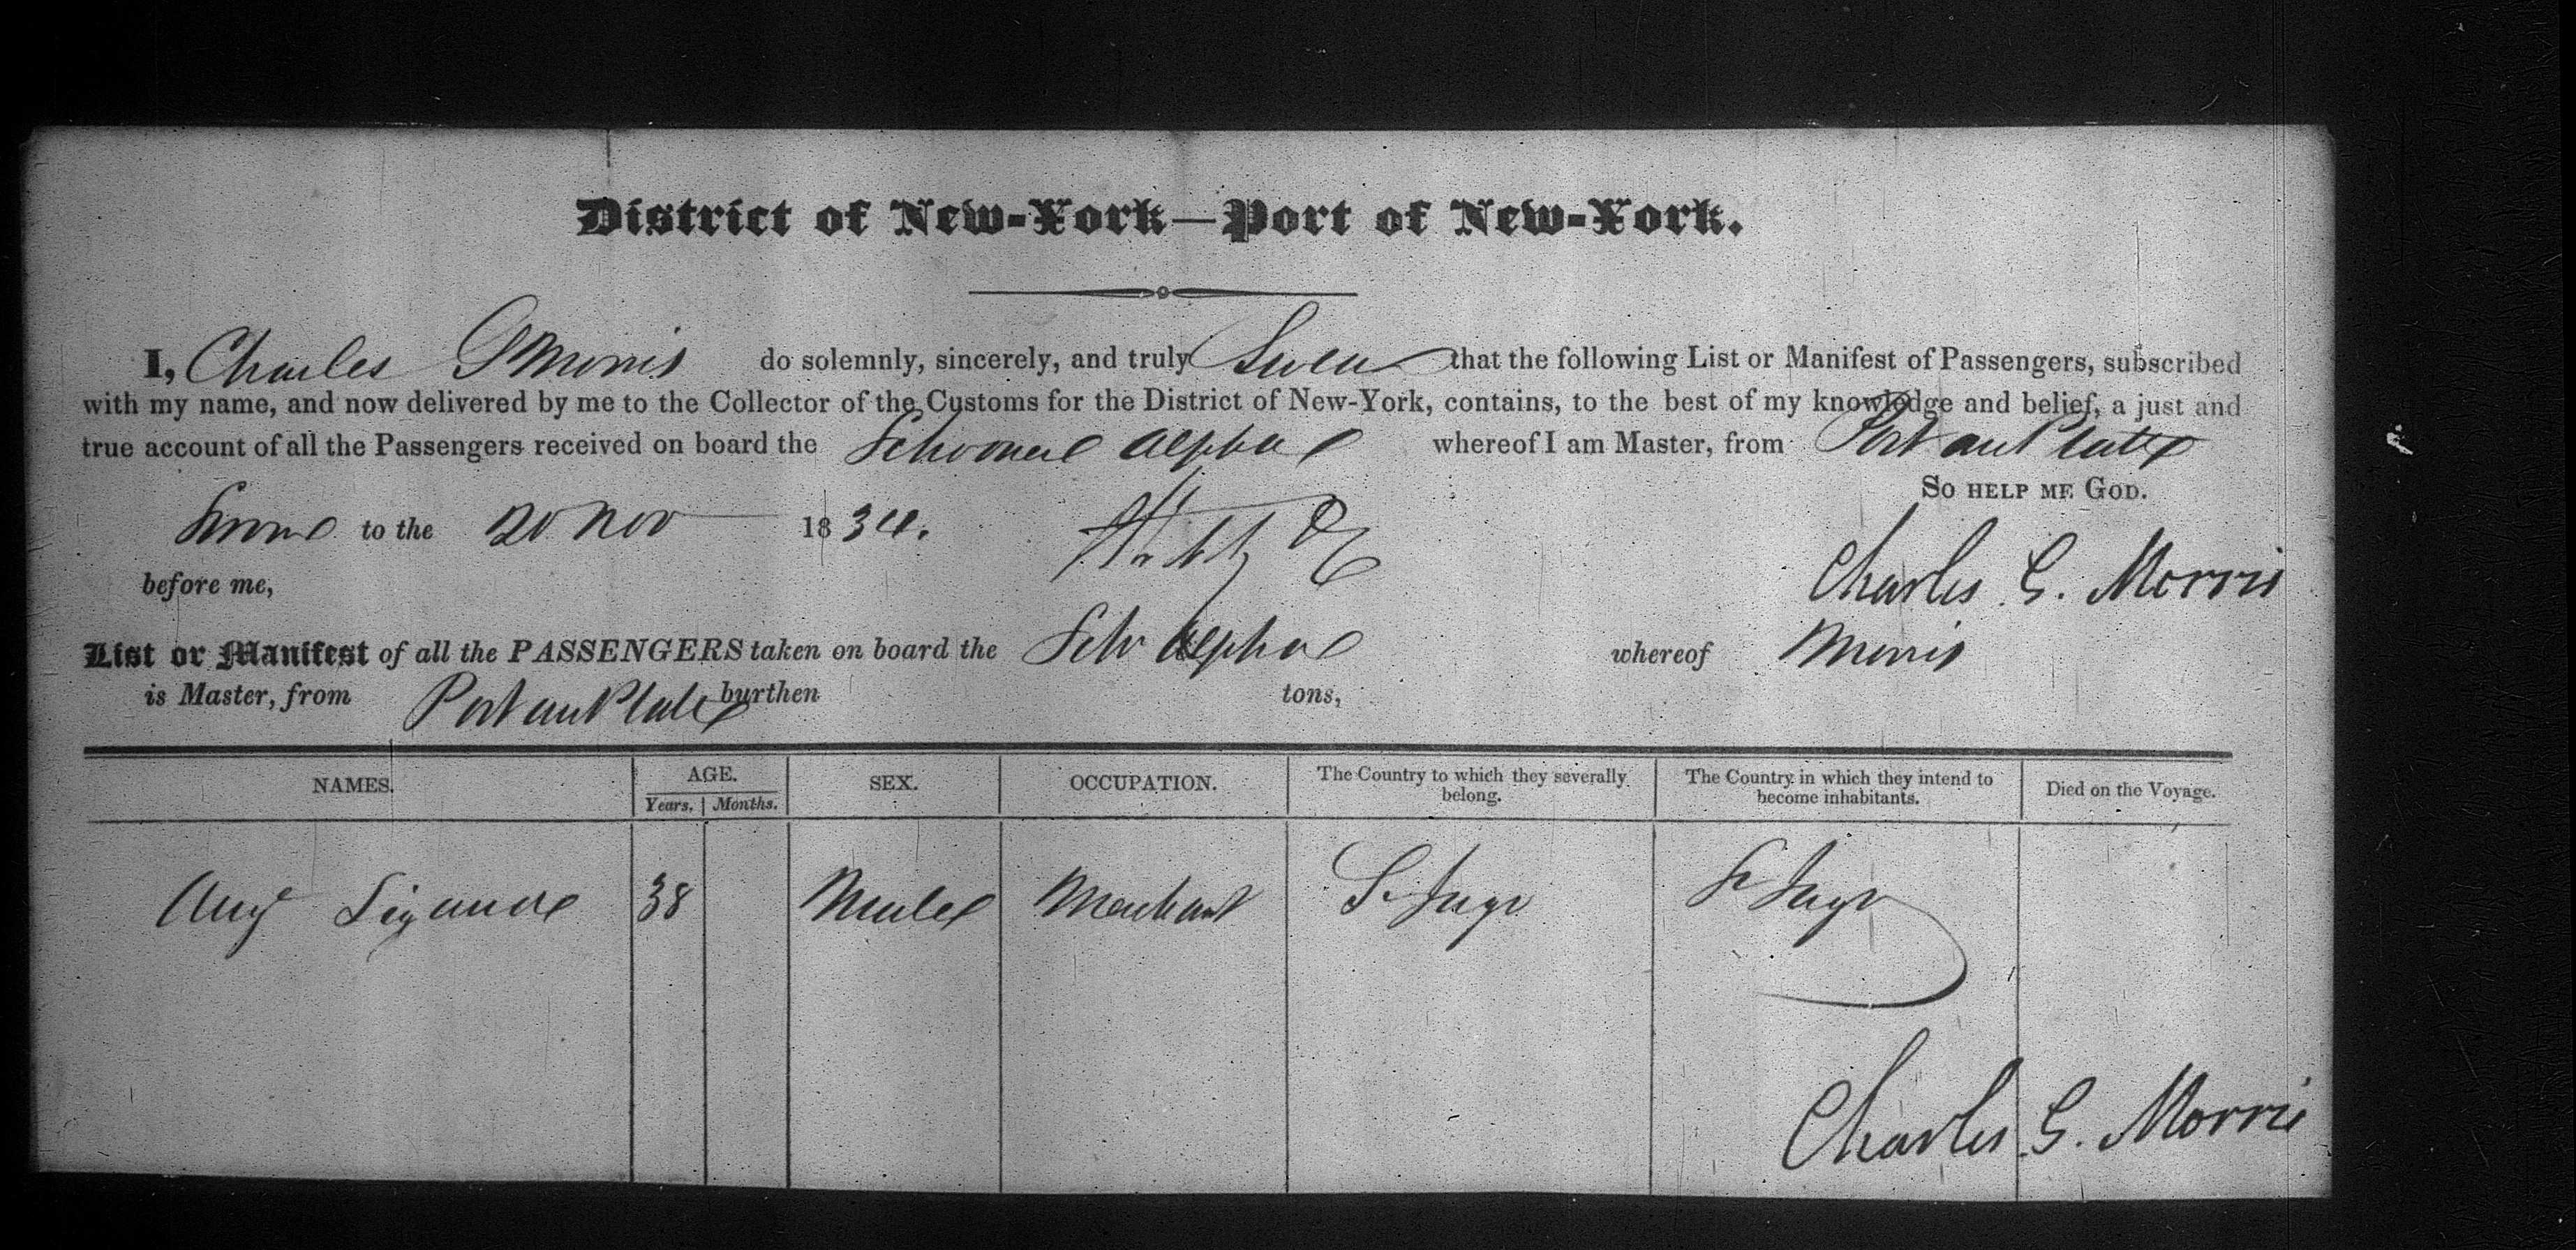 District of New-York—Port of New-York.
I, Charles G Morris do solemnly, sincerely, and truly Swear that the following List or Manifest of Passengers, subscribed
with my name, and now delivered by me to the Collector of the Customs for the District of New-York, contains, to the best of my knowledge and belief, a just and
true account of all the Passengers received on board the Schooner Alpha whereof I am Master, from Port au Platte
So help me God.
Sworn to the 20 Nov 1834.
before me,
Charles G. Morris
List or Manifest of all the PASSENGERS taken on board the Schr Alpha whereof Morris
is Master, from Port au Plate burthen tons,
NAMES. AGE. SEX. OCCUPATION. The Country to which they severally belong. The Country in which they intend to become inhabitants. Died on the Voyage.
Years. Months.
Aug 38 Male Merchant
Charles G. Morris